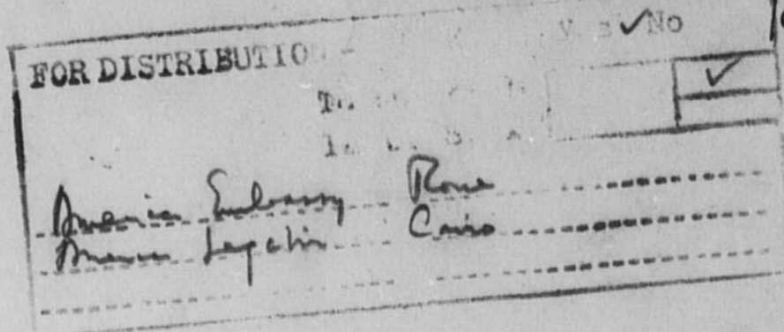 FOR DISTRIBUTIO - Yes ✓ No
✓
American Embassy Rome
American Legation Cairo